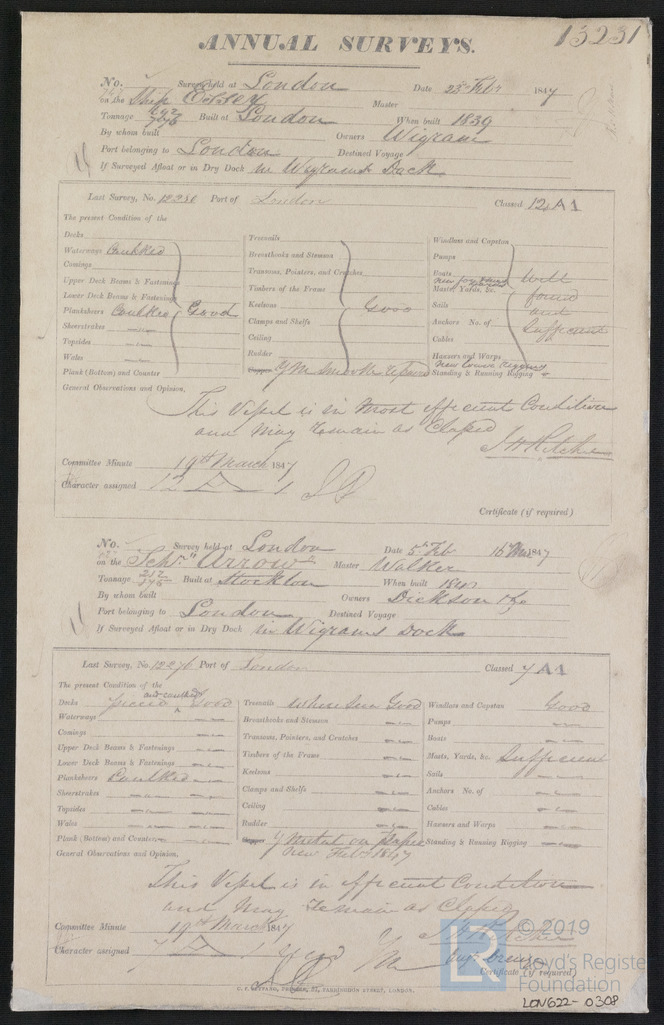 13231
ANNUAL SURVEYS.
No. Survey held at London Date 25 Feb 1847
on the Ship Master
Tonnage Built at London When built 1839
By whom built Owners Wigram
Port belonging to London Destined Voyage
If Surveyed Afloat or in Dry Dock in Wigrams Dock
Last Survey, No. Port of London Classed 12 A1
The present Condition of the
Decks Treenails Windlass and Capstan
Waterways Caulked Breasthooks and Stemson Pumps
Comings Transoms, Pointers, and Crutches Boats Well
Upper Deck Beams & Fastenings Timbers of the Frame Masts, Yards, &c. found
Lower Deck Beams & Fastenings Keelsons Good Sails and
Planksheers Caulked Good Clamps and Shelfs Anchors No. of Sufficient
Sheerstrakes Ceiling Cables
Topsides Rudder Hawsers and Warps
Wales Standing & Running Rigging
Plank (Bottom) and Counter
General Observations and Opinion,
This Vessel is in most efficient Condition
and may remain as Classed
Committee Minute 19th March 1847
Character assigned 12 A 1
Certificate (if required)
No. Survey held at London Date 5th Feb 16 Mar 1847
on the Schr "Arrow" Master Walker
Tonnage Built at Stockton When built
By whom built Owners Dickson & Co
Port belonging to London Destined Voyage
If Surveyed Afloat or in Dry Dock in Wigrams Dock
Last Survey, No. 12276 Port of London Classed 7 A1
The present Condition of the
Decks and caulked Good Treenails Where seen Good Windlass and Capstan Good
Waterways Breasthooks and Stemson Pumps
Comings Transoms, Pointers, and Crutches Boats
Upper Deck Beams & Fastenings Timbers of the Frame Masts, Yards, &c. Sufficient
Lower Deck Beams & Fastenings Keelsons Sails
Planksheers Caulked Clamps and Shelfs Anchors No. of
Sheerstrakes Ceiling Cables
Topsides Rudder Hawsers and Warps
Wales Y Metal on Standing & Running Rigging
Plank (Bottom) and Counter New Feby 1847
General Observations and Opinion,
This Vessel is in efficient Condition
and may remain as Classed
Committee Minute 19th March 1847
Character assigned 7 A 1
Certificate (if required)
LR © 2019
Lloyd's Register
Foundation
LON622-0308